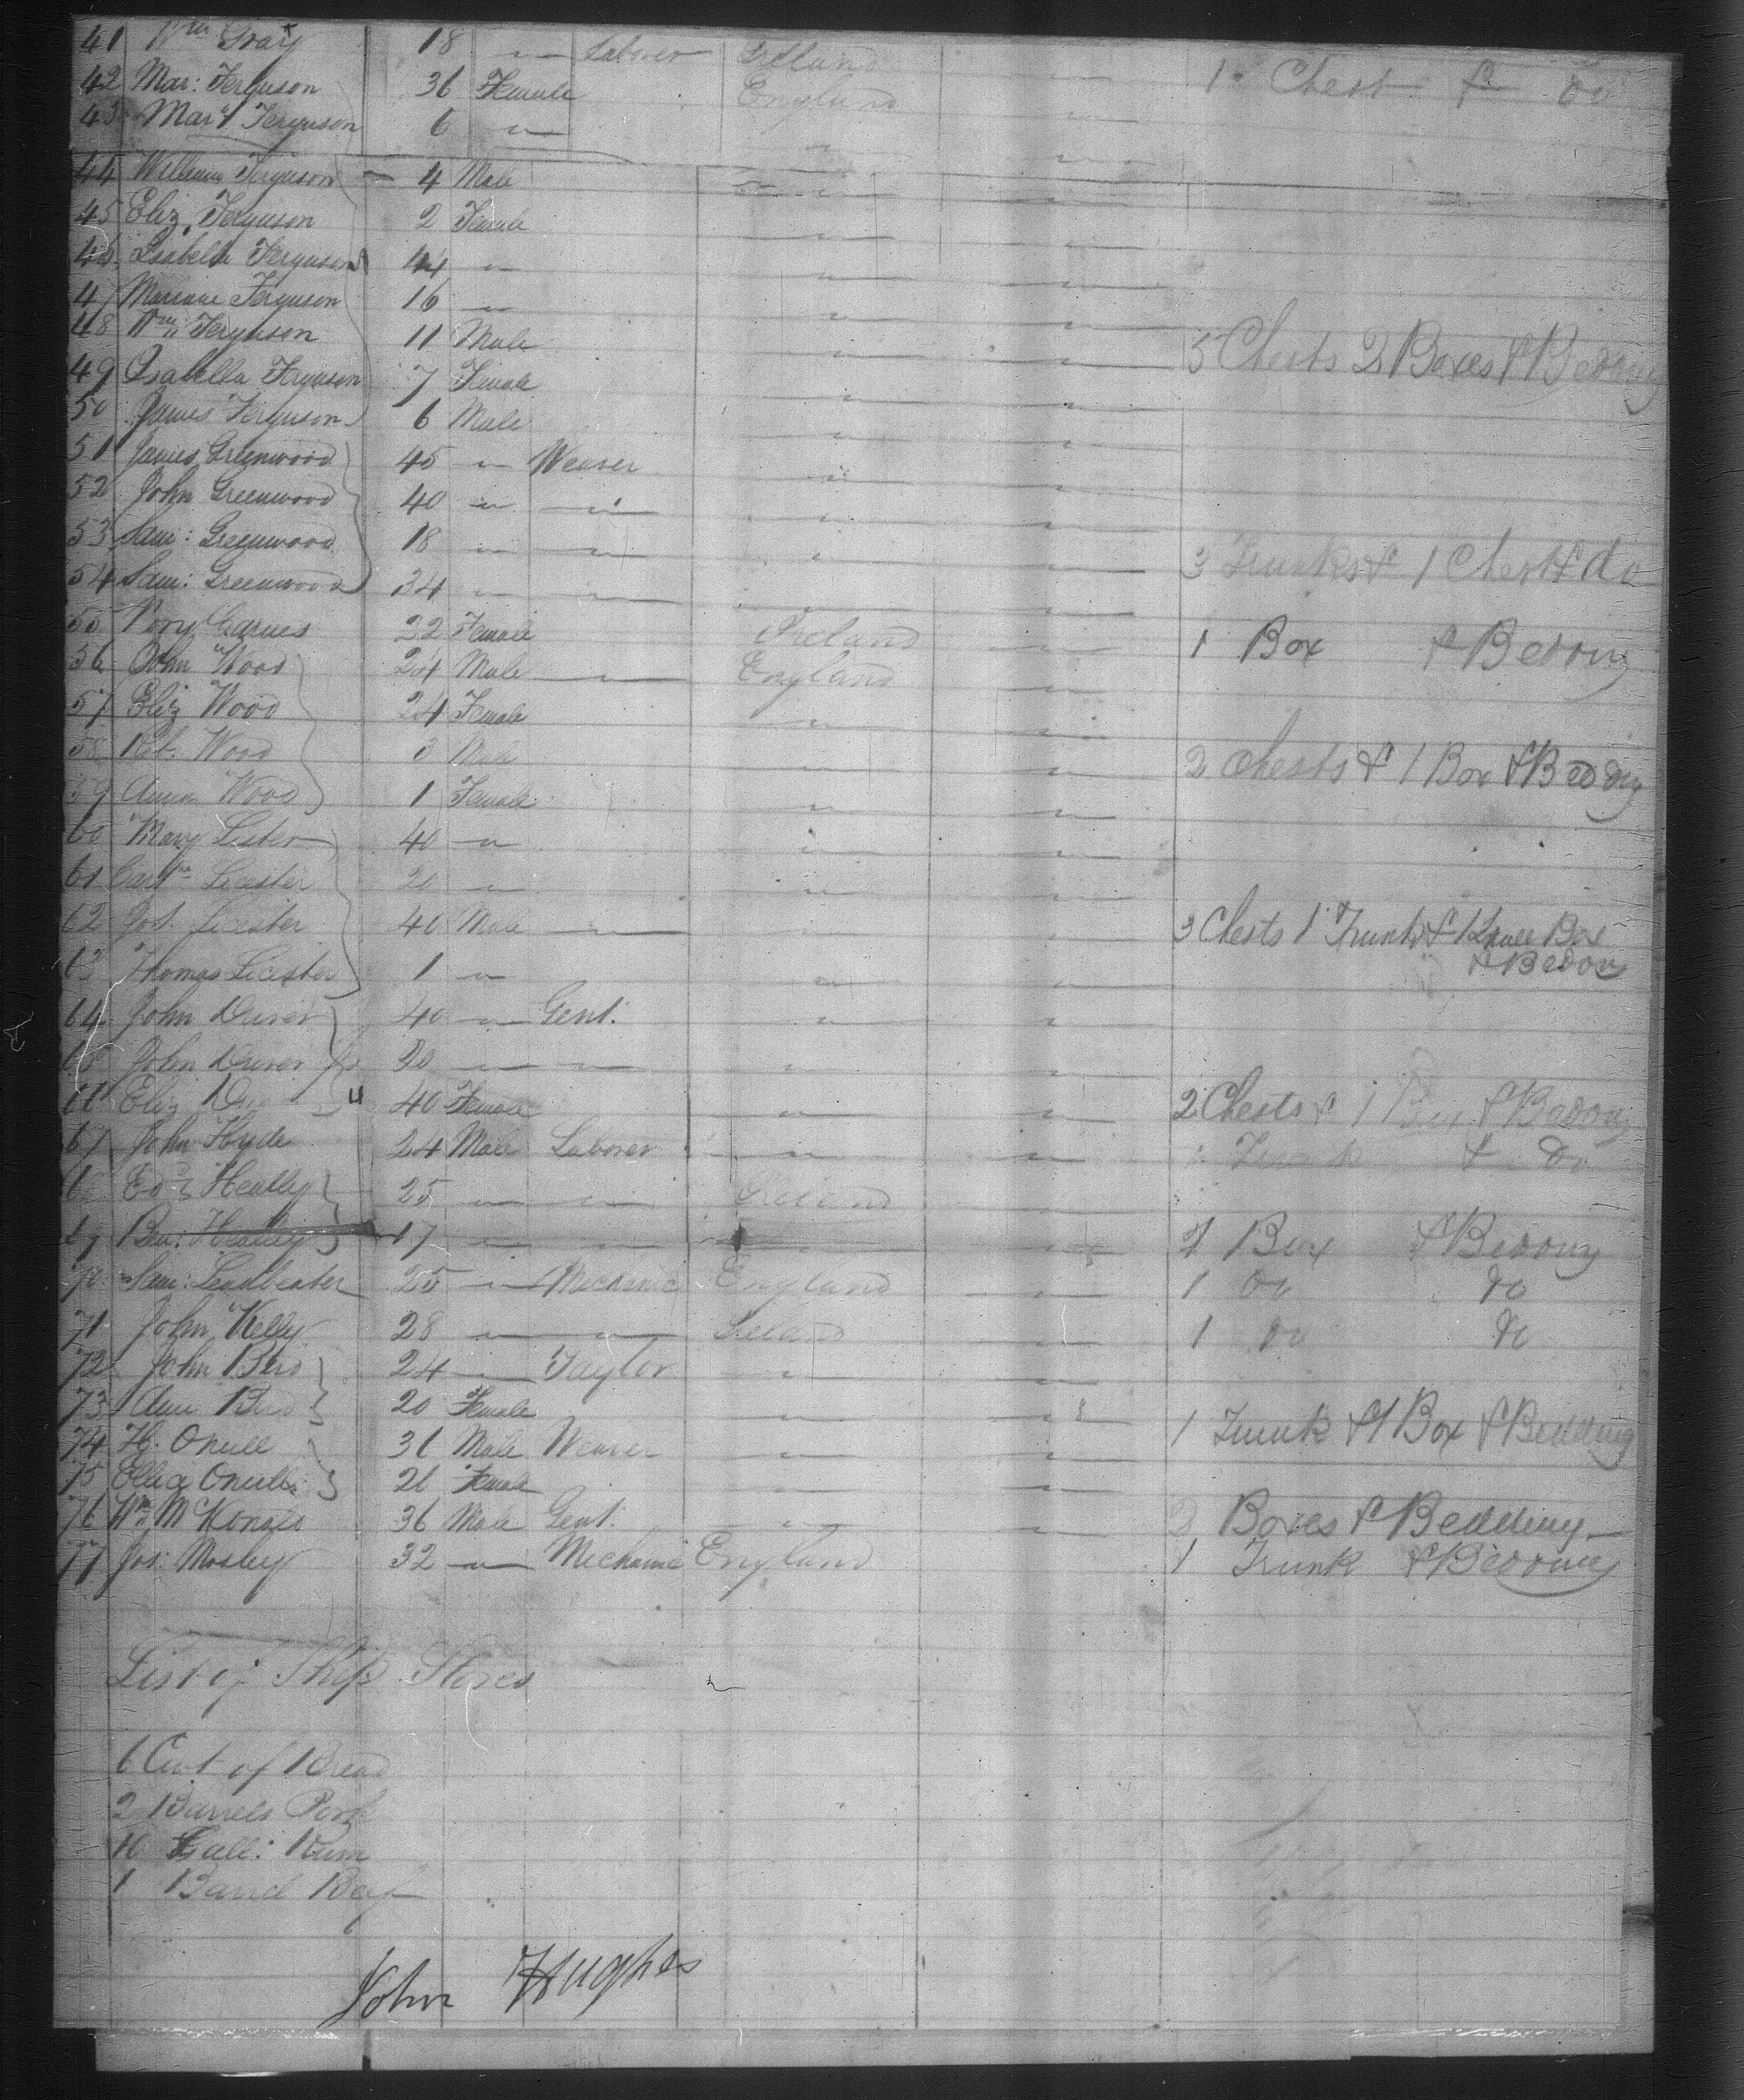 41 Wm Gray 18 " Laborer Ireland "
42 Mar: Ferguson 36 Female England " 1 Chest & do
43 Mart Ferguson 6 " " "
44 William Ferguson 4 Male " "
45 Eliz Ferguson 2 Female " "
46 Isabella Ferguson 44 " " "
47 Ferguson 16 " " "
48 Wm Ferguson 11 Male " " 5 Chests 2 Boxes & Bedding
49 Isabella Ferguson 7 Female " "
50 James Ferguson 6 Male " "
51 James Greenwood 45 " Weaver " "
52 John Greenwood 40 " " " "
53 Sam: Greenwood 18 " " " " 3 Trunks & 1 Chest & do
54 Sam: Greenwood 34 " " " "
55 22 Female Ireland " 1 Box & Bedding
56 John Wood 24 Male " England "
57 Eliz Wood 24 Female " "
58 Rob. Wood 3 Male " " 2 Chests & 1 Box & Bedding
59 Wood 1 Female " "
60 Mary Lister 40 " " "
61 Leicester 20 " " "
62 Jos. Leicester 40 Male " " " 3 Chests 1 Trunk & 1 Box
& Bedding
63 Thomas Leicester 1 " " "
64 John Driver 40 " Gent. " "
65 John Driver Jr 20 " " " "
66 Eliz 40 Female " " 2 Chests & 1 Box & Bedding
67 John Hyde 24 Male Laborer " " Trunk & do
68 Edd Heatley 25 " " Ireland "
69 Ben: Heatley 17 " " " " 1 Box & Bedding
70 Sam: Leadbeater 25 " Mechanic England " 1 do do
71 John Kelly 28 " " Ireland " 1 do do
72 John Bird 24 " Taylor " "
73 Ann Bird 20 Female " " 1 Trunk & 1 Box & Bedding
74 H. Oneill 31 Male Weaver " "
75 Oneill 21 Female " "
76 Wm 36 Male Gent. " " 2 Boxes & Bedding
77 Jos: Mosley 32 " Mechanic England 1 Trunk & Bedding
List of Ships Stores
6 Cwt of Bread
2 Barrels Pork
10 Gall: Rum
1 Barrel Beef
John Hughes